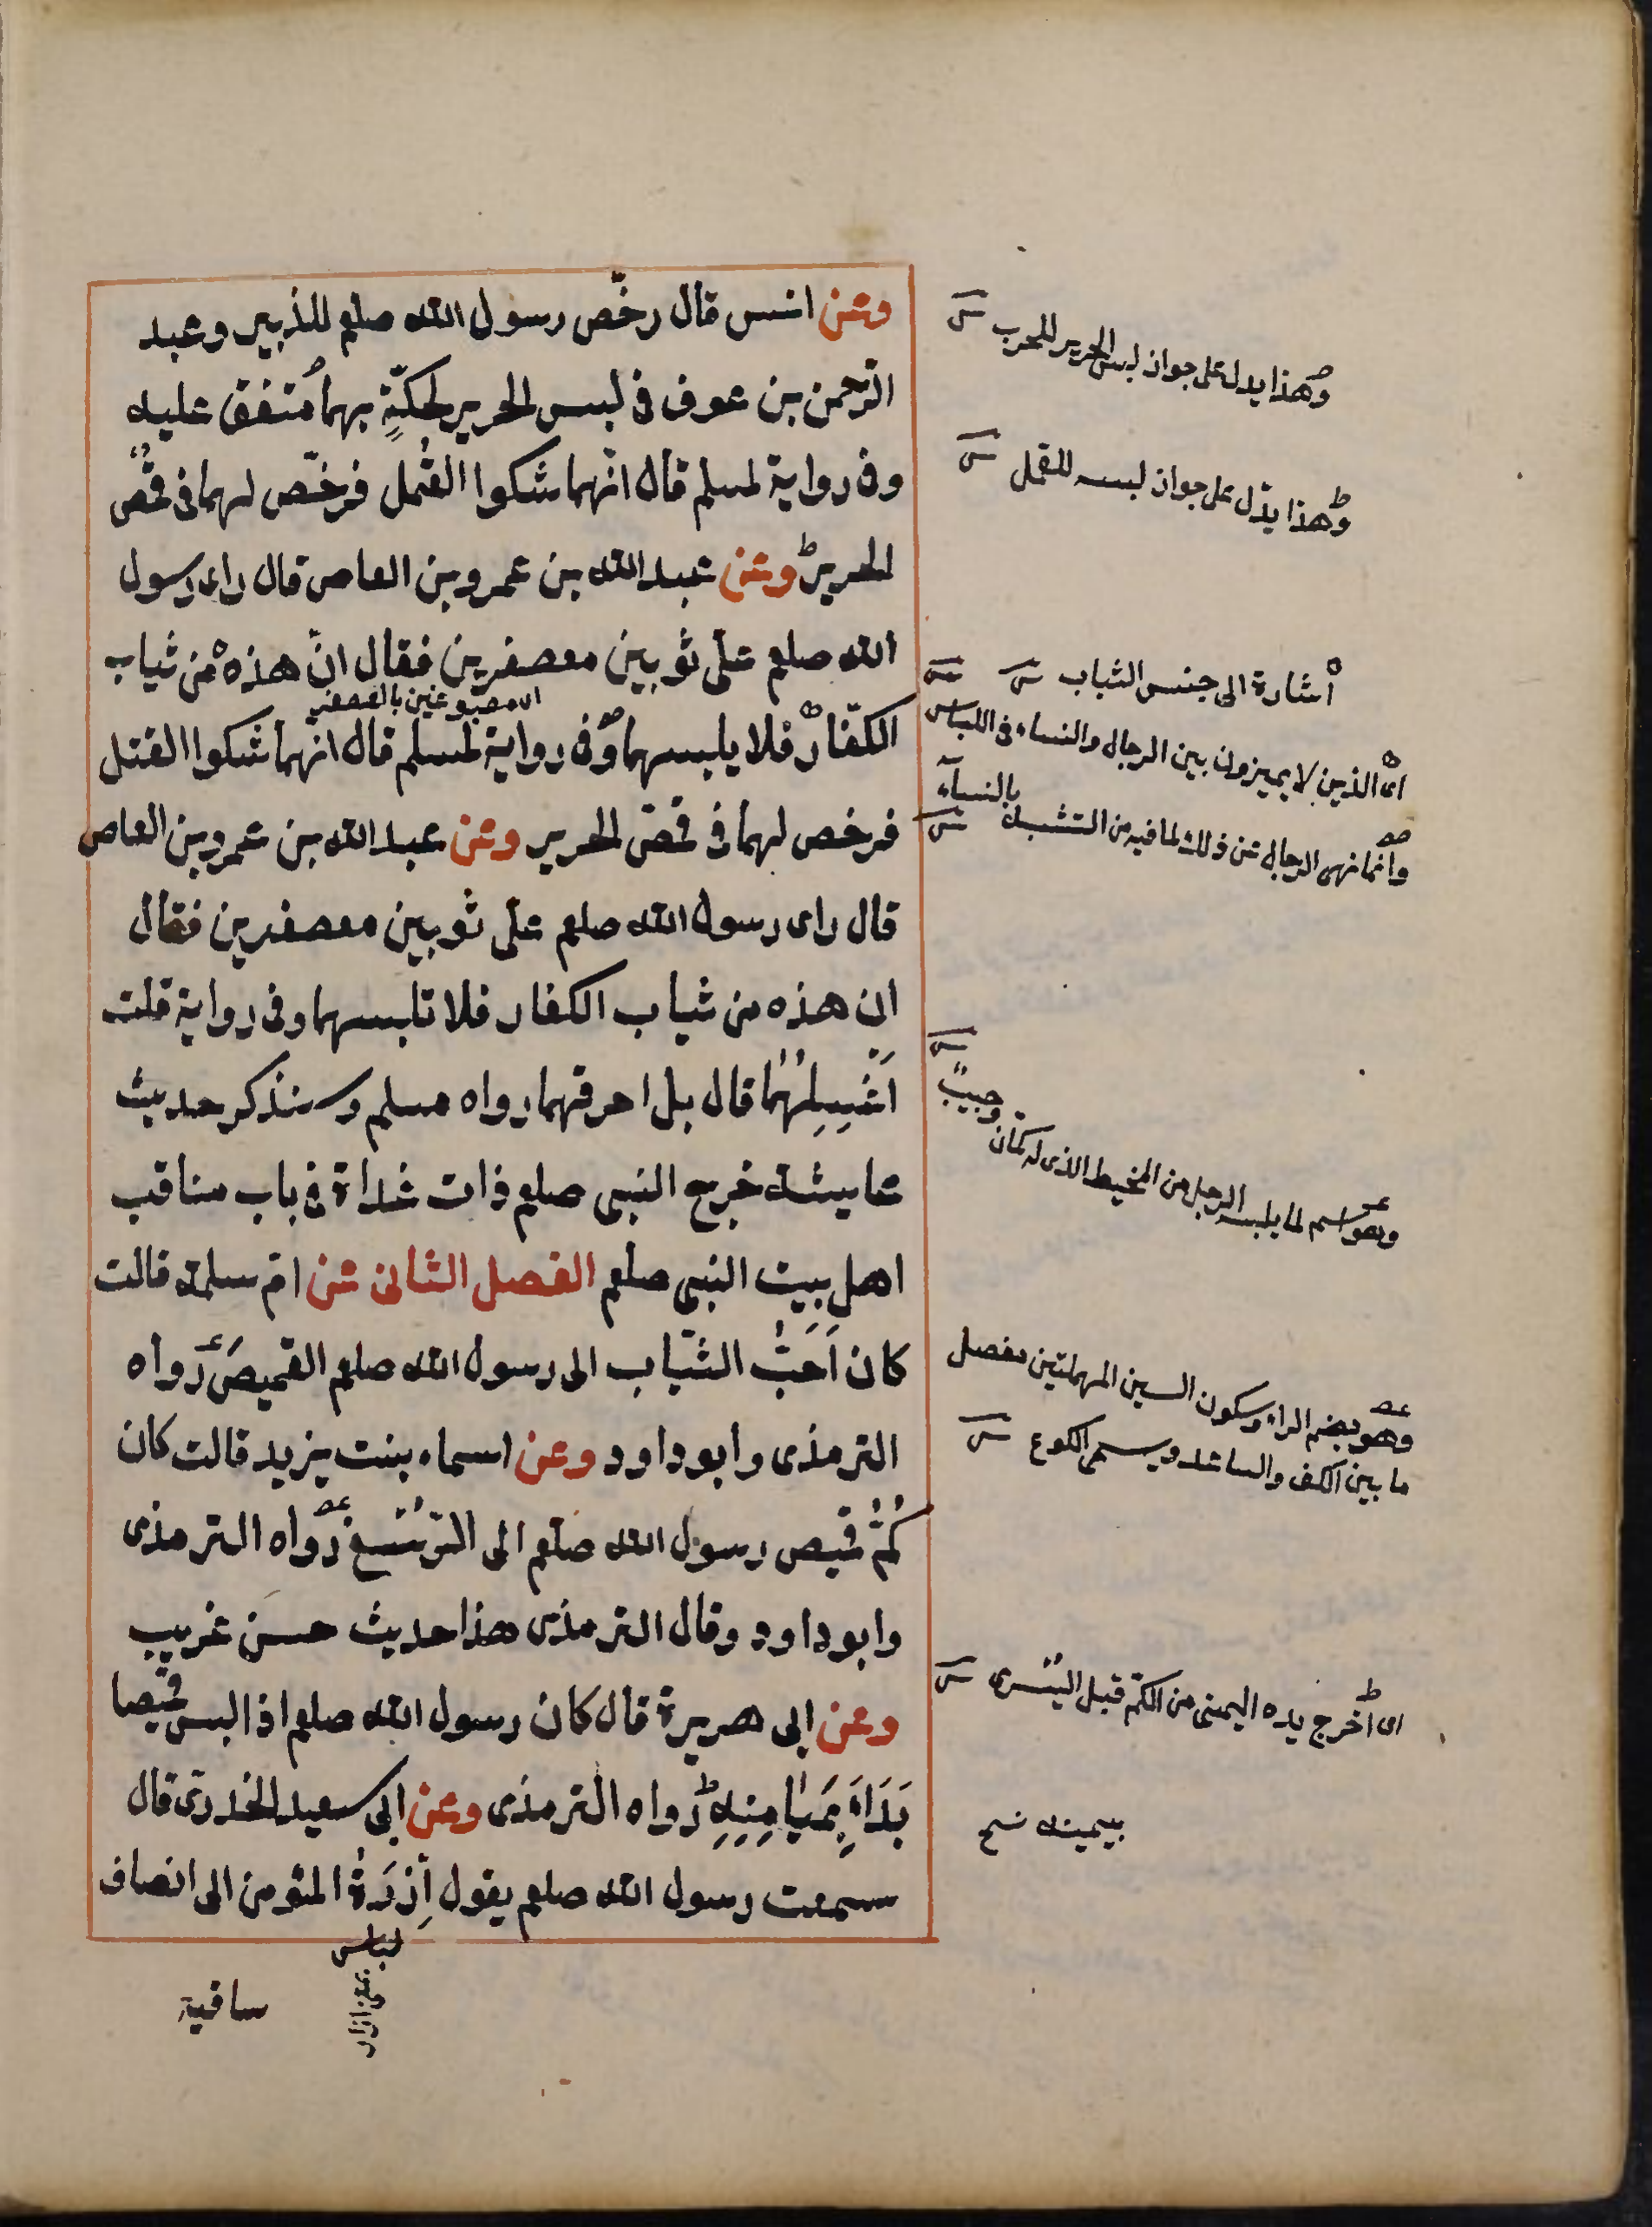 وعن انس قال رخّص رسول الله صلعم للزبير وعبد
الرّحمن بن عوف فى لبس الحرير لحكّةٍ بهما متفق عليه
وفى رواية لمسلم قال انّهما شكوا القُمل فرخّص لهما فى قُمُص
الحرير وعن عبد الله بن عمرو بن العاص قال راى رسول
الله صلعم علىّ ثوبين معصفرين فقال انّ هذه من ثياب
اى مصبوغين بالعصفر
الكفّار فلا يلبسهما وفى رواية لمسلم قال انهما شكوا القمل
فرخص لهما فى قمص الحرير وعن عبد الله بن عمرو بن العاص
قال راى رسول الله صلعم علىّ ثوبين معصفرين فقال
ان هذه من ثياب الكفار فلا تلبسهما وفى رواية قلت
اَغْسِلُهُما قال بل احرقهما رواه مسلم وسنذكر حديث
عايشة خرج النبى صلعم ذات غداة فى باب مناقب
اهل بيت النبى صلعم الفصل الثانى عن امّ سلمة قالت
كان اَحَبُّ الثّياب الى رسول الله صلعم القميصَ رواه
الترمذى وابو داود وعن اسماء بنت يزيد قالت كان
كُمُّ قميص رسول الله صلعم الى الرُّسْغ رواه الترمذى
وابو داود وقال الترمذى هذا حديث حسن غريب
وعن ابى هريرة قال كان رسول الله صلعم اذا لبس قميصا
بَدَاَ بِمَيَامِنِهِ رواه الترمذى وعن ابى سعيد الخدرى قال
سمعت رسول الله صلعم يقول اِزْرَةُ المؤمن الى انصاف
لباس
بمعنى ازار
ساقيه
وهذا يدل على جواز لبس الحرير للحرب
وهذا يدّل على جواز لبسه للقمل
اشارة الى جنس الثياب
اى الذين لا يميزون بين الرجال والنساء فى اللباس
وانما نهى الرجال عن ذلك لما فيه من التشبه بالنسآء
وهو اسم لما يلبسه الرجل من المخيط الذى له كمّان وجيب
وهو بضم الراء وسكون السين المهملتين مفصل
ما بين الكف والساعد ويسمى الكوع
اى اخرج يده اليمنى من الكمّ قبل اليُسْرى
بيمينه نسخ